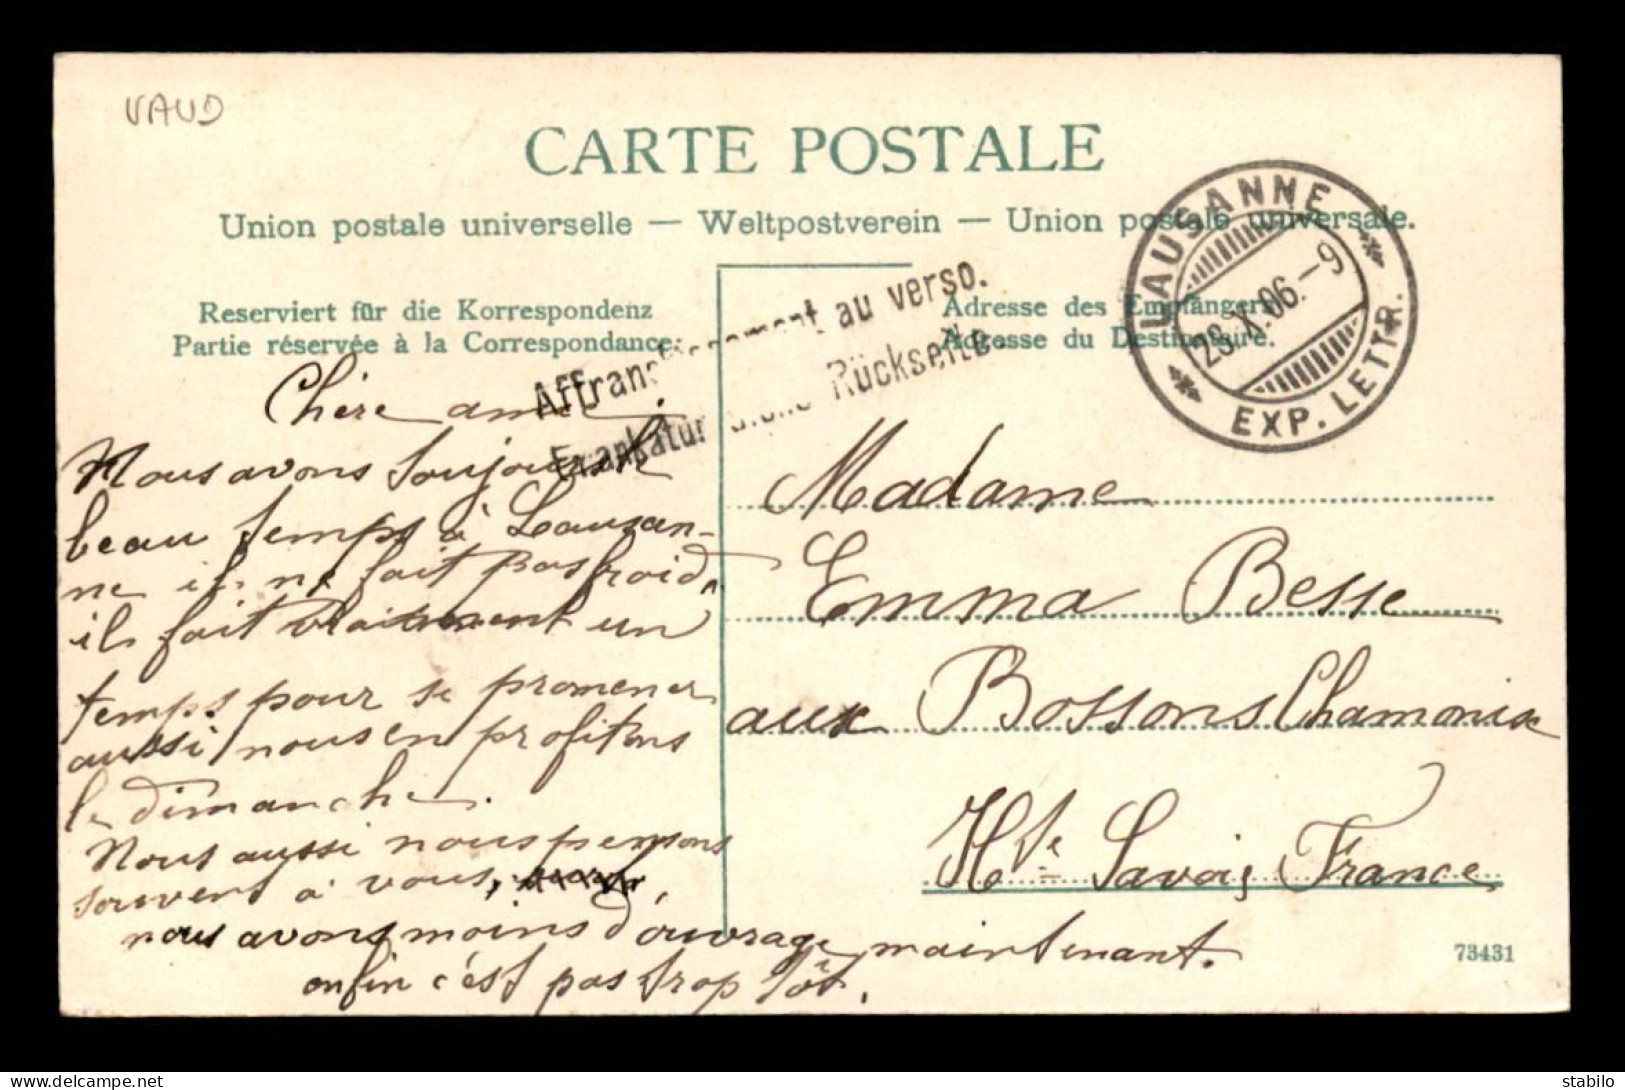 VAUD
CARTE POSTALE
Union postale universelle — Weltpostverein — Union postale universale.
Reserviert für die Korrespondenz
Partie réservée à la Correspondance.
Adresse des Empfängers.
Adresse du Destinataire.
Affranchissement au verso.
Frankatur siehe Rückseite.
LAUSANNE
28.X.06.–9
EXP. LETTR.
Chère amie.
Nous avons toujours le
beau temps à Lausan-
ne il ne fait pas froid
il fait vraiment un
temps pour se promener
aussi nous en profitons
le dimanche.
Nous aussi nous pensons
souvent à vous,
nous avons moins d'ouvrage maintenant.
enfin c'est pas trop tôt.
Madame
Emma Besse
aux Bossons Chamonix
Hte Savoie France
73431
www.delcampe.net
stabilo